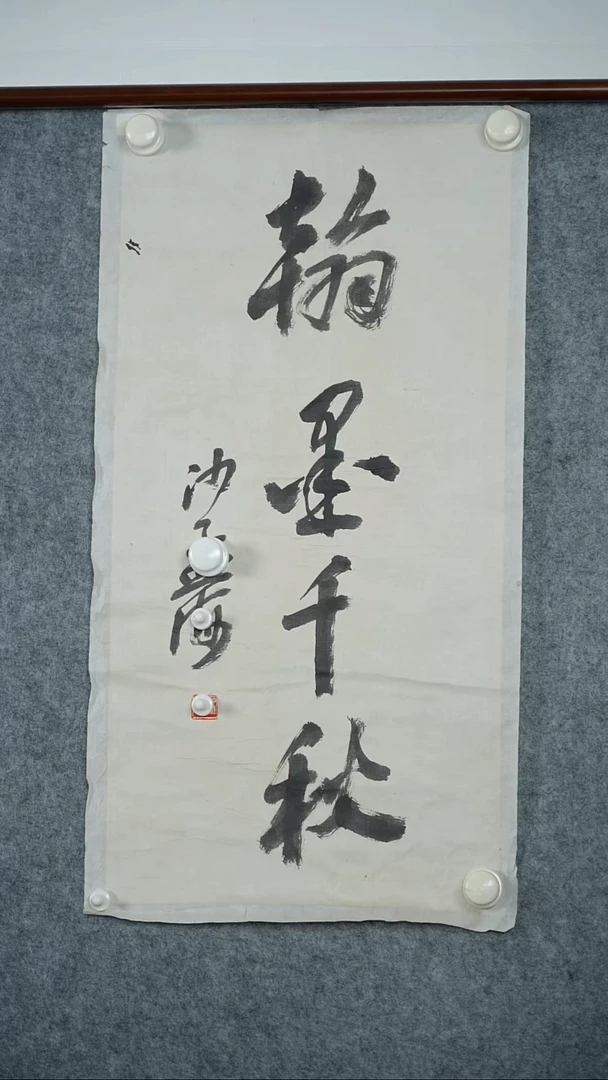 翰墨千秋
沙孟海